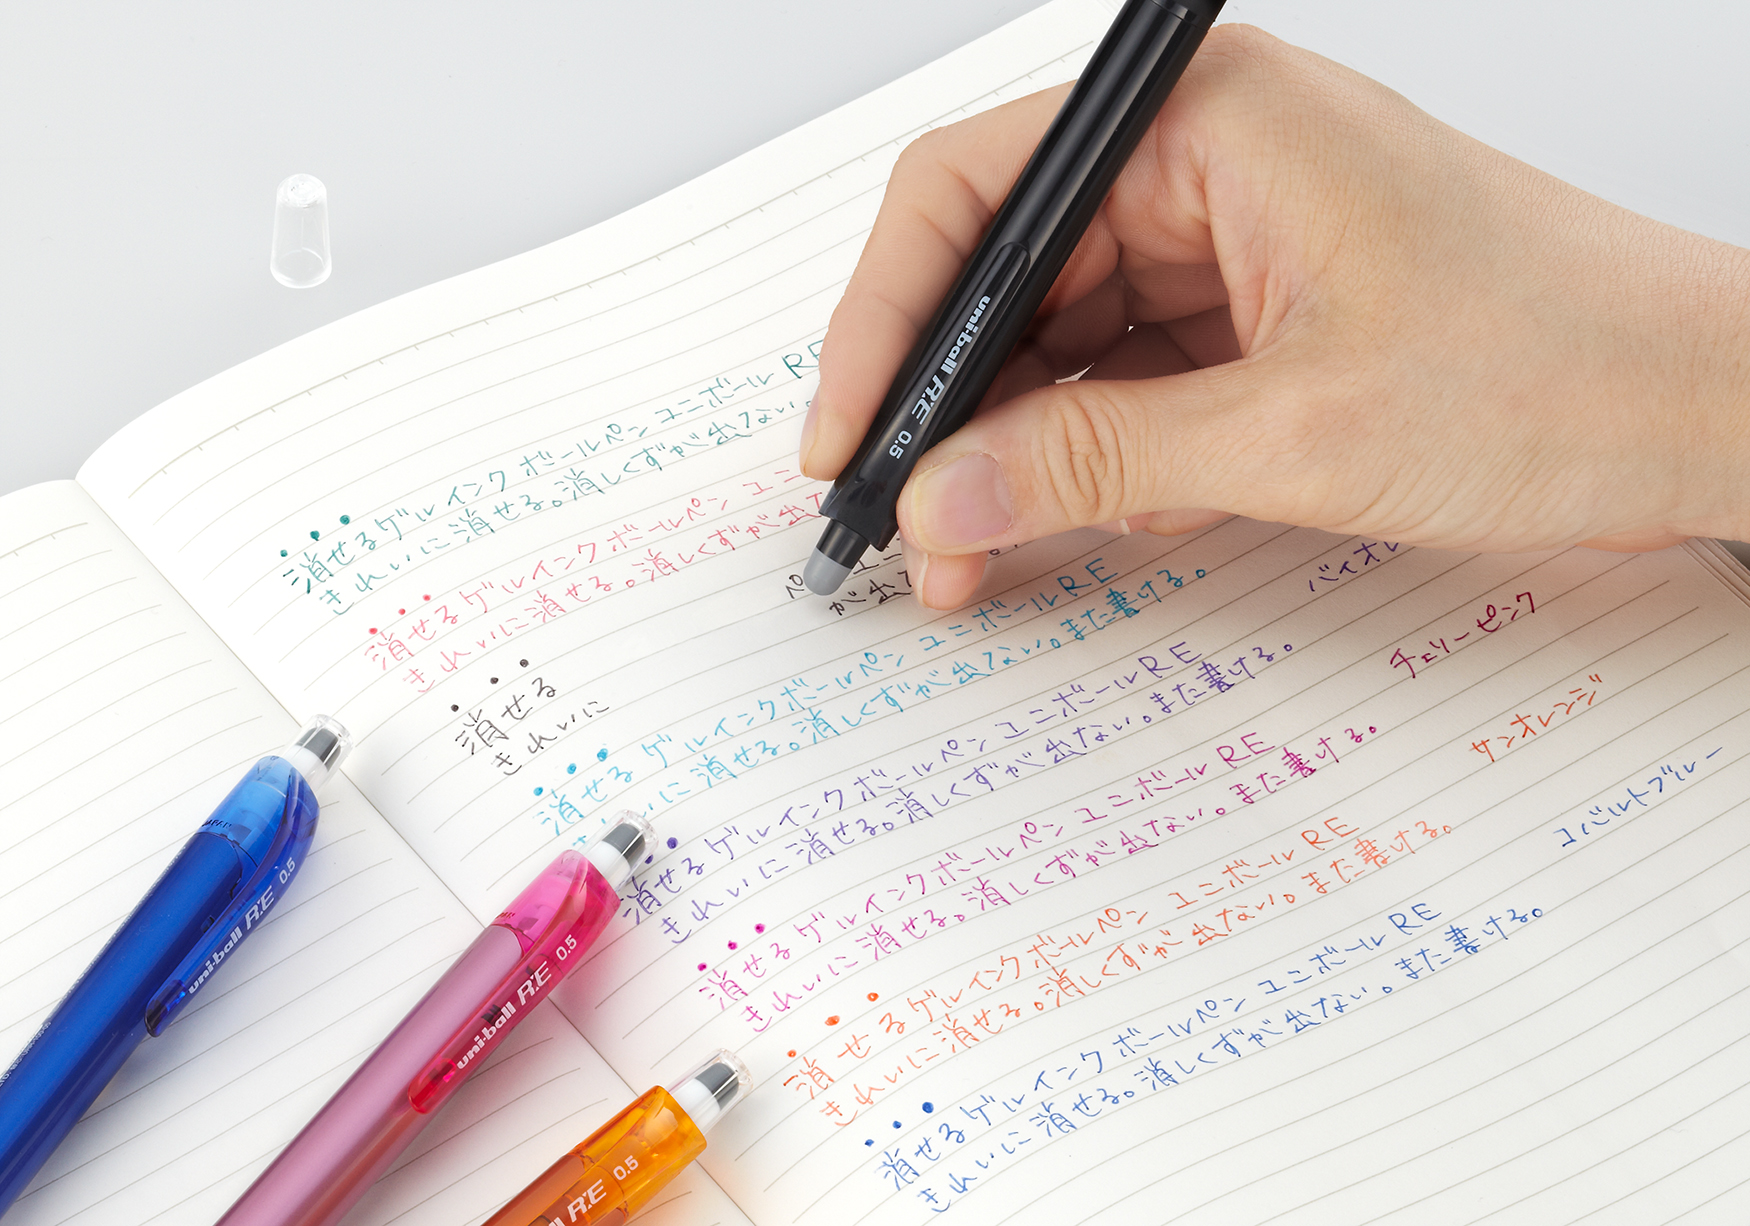 消せるゲルインクボールペン ユニボール RE
きれいに消せる。消しくずが出ない。
消せるゲルインクボールペン ユニ
きれいに消せる。消しくずが出
消せる
きれいに
ペ
が出
消せる ゲルインクボールペン ユニボールRE
いに消せる。消しくずが出ない。また書ける。
消せるゲルインクボールペン ユニボールRE
きれいに消せる。消しくずが出ない。また書ける。
消せるゲルインクボールペン ユニボールRE
きれいに消せる。消しくずが出ない。また書ける。
消せるゲルインクボールペン ユニボールRE
きれいに消せる。消しくずが出ない。また書ける。
消せるゲルインクボールペン ユニボールRE
きれいに消せる。消しくずが出ない。また書ける。
バイオレ
チェリーピンク
サンオレンジ
コバルトブルー
uni-ball R:E 0.5
uni-ball R:E 0.5
uni-ball R:E 0.5
R:E 0.5